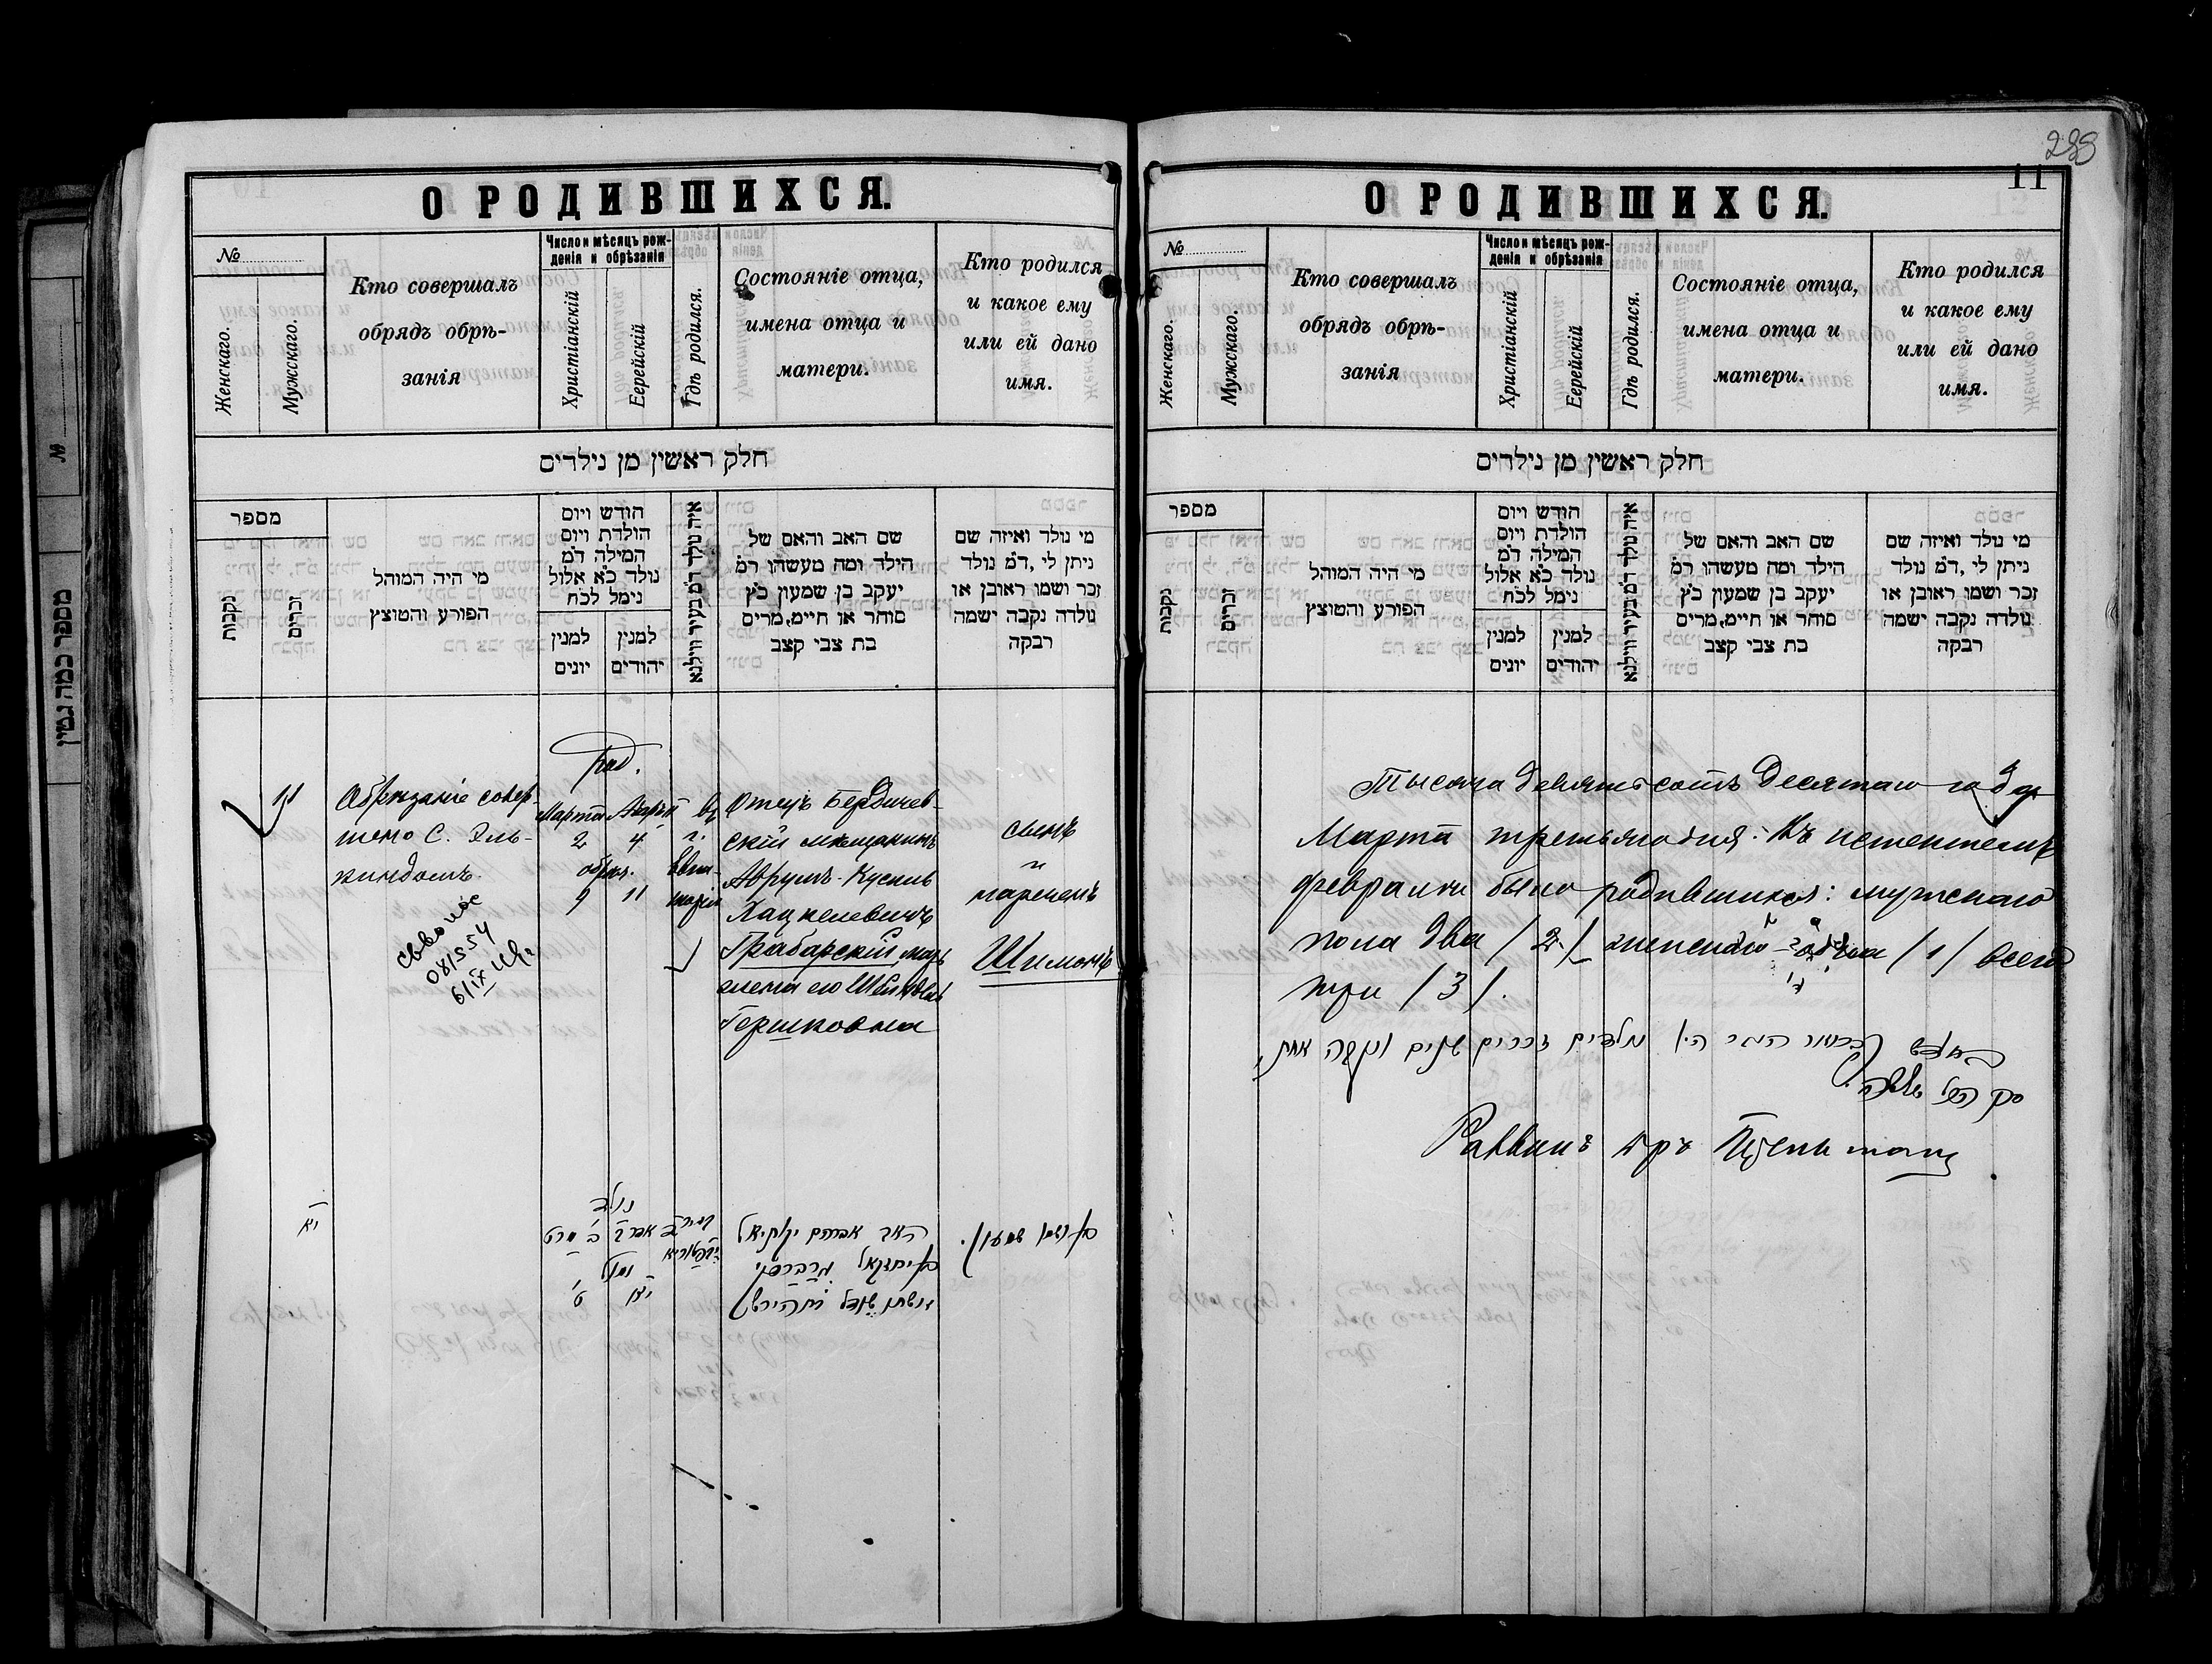 О РОДИВШИХСЯ.
№
Женскаго.
Мужскаго.
Кто совершалъ
обрядъ обрѣ-
занія
Число и мѣсяцъ рож-
денія и обрѣзанія
Христіанскій
Еерейскій
Гдѣ родился.
Состояніе отца,
имена отца и
матери.
Кто родился
и какое ему
или ей дано
имя.
חלק ראשין מן נילדים
מספר
נקבות
זכרים
מי היה המוהל
הפורע והמוצץ
חודש ויום
הולדת ויום
המילה ד"מ
נולד כ"א אלול
נימל לכ"ח
למנין
יונים
למנין
יהודים
איה נולד ד"מ בעיר ווילנא
שם האב והאם של
הילד ומה מעשהו ד"מ
יעקב בן שמעון כ"ץ
סוחר או חיים, מרים
בת צבי קצב
מי נולד ואיזה שם
ניתן לי, ד"מ נולד
זכר ושמו ראובן או
נולדה נקבה ישמה
רבקה
11
Обрѣзаніе совер-
шено С. Эль-
киндомъ.
свво нос
081554
6/IX
Род.
Марта
2
4
обрѣз.
9
11
въ
г.
Евпа-
торіи
Отецъ Бердичев-
скій мѣщанинъ
Аврумъ-Кусиль
Хацкелевичъ
Грабарскій, мать
жена его Шейндля
Гершковна
сынъ
и
нареченъ
Шимонъ
יא
נולד
ב מרט
נמול
ט
יא
האב אברהם יקותיאל
בן יחזקאל גרברסקי
בן ושמו שמעון.
288
11
О РОДИВШИХСЯ.
№
Женскаго.
Мужскаго.
Кто совершалъ
обрядъ обрѣ-
занія
Число и мѣсяцъ рож-
денія и обрѣзанія
Христіанскій
Еерейскій
Гдѣ родился.
Состояніе отца,
имена отца и
матери.
Кто родился
и какое ему
или ей дано
имя.
חלק ראשין מן נילדים
מספר
נקבות
זכרים
מי היה המוהל
הפורע והמוצץ
חודש ויום
הולדת ויום
המילה ד"מ
נולד כ"א אלול
נימל לכ"ח
למנין
יונים
למנין
יהודים
איה נולד ד"מ בעיר ווילנא
שם האב והאם של
הילד ומה מעשהו ד"מ
יעקב בן שמעון כ"ץ
סוחר או חיים, מרים
בת צבי קצב
מי נולד ואיזה שם
ניתן לי, ד"מ נולד
זכר ושמו ראובן או
נולדה נקבה ישמה
רבקה
Тысяча девятьсотъ десятаго года
Марта третьяго дня. Въ истекшемъ
февралѣ было родившихся: мужского
пола два /2/ женскаго одна /1/ всего
три /3/.
נולדים זכרים שנים ונקבה אחת,
סך הכל שלשה.
Раввинъ
מספר כמה נשין
№